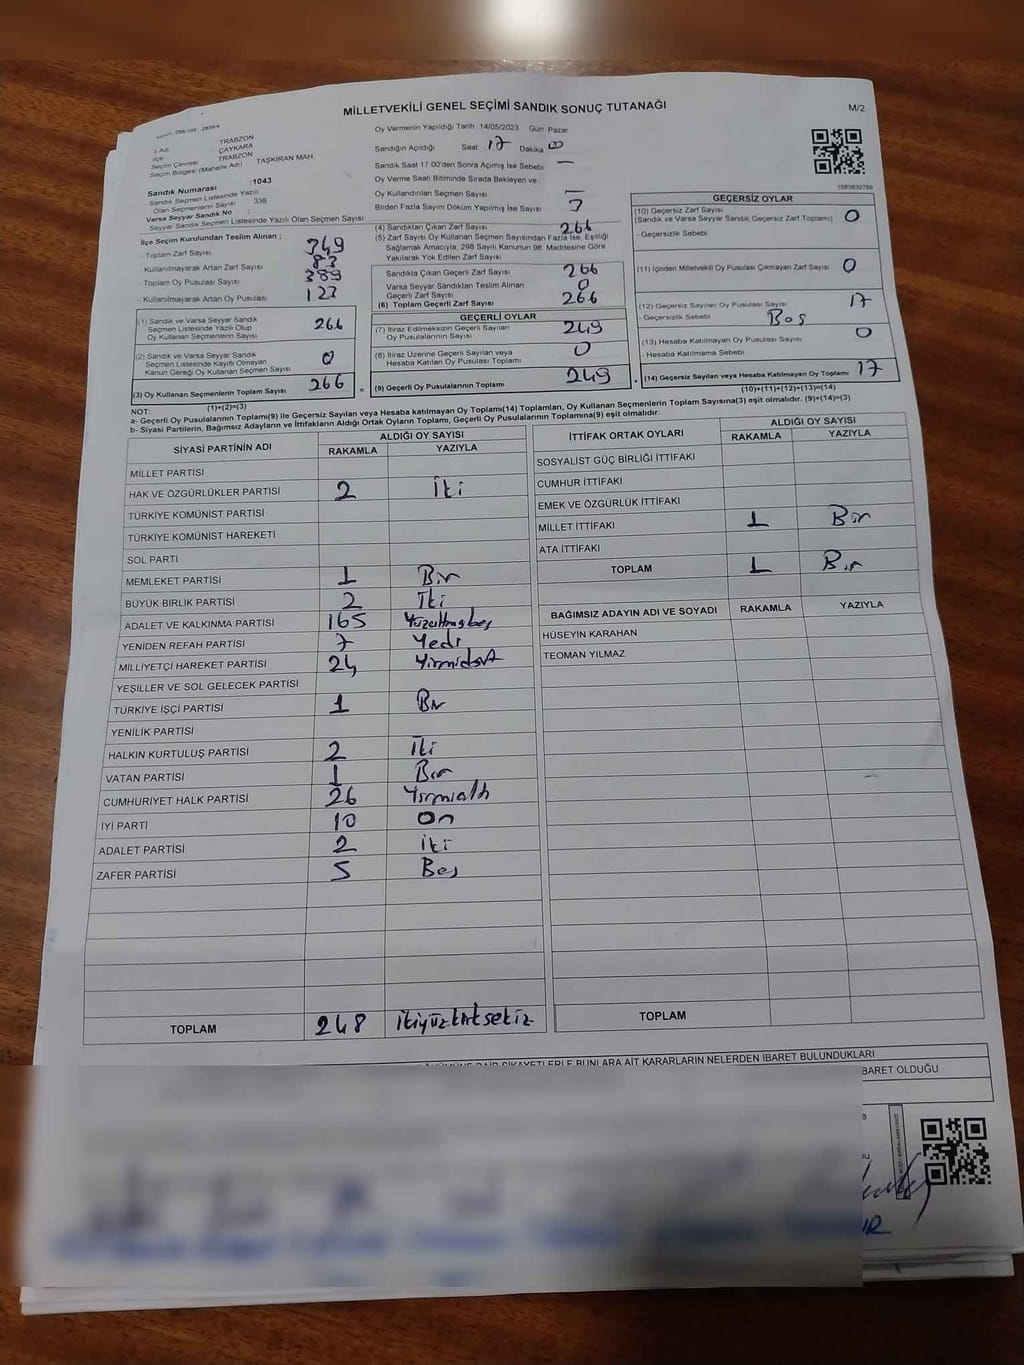 MİLLETVEKİLİ GENEL SEÇİMİ SANDIK SONUÇ TUTANAĞI
M/2
İl Adı TRABZON
İlçe ÇAYKARA
Seçim Çevresi TRABZON
Seçim Bölgesi (Mahalle Adı) TAŞKIRAN MAH.
Sandık Numarası : 1043
Sandık Seçmen Listesinde Yazılı Olan Seçmenlerin Sayısı 338
Varsa Seyyar Sandık No :
Seyyar Sandık Seçmen Listesinde Yazılı Olan Seçmen Sayısı
Oy Vermenin Yapıldığı Tarih :14/05/2023 Gün: Pazar
Sandığın Açıldığı Saat 17 Dakika 00
Sandık Saat 17:00'den Sonra Açılmış İse Sebebi —
Oy Verme Saati Bitiminde Sırada Bekleyen ve
Oy Kullandırılan Seçmen Sayısı —
Birden Fazla Sayım Döküm Yapılmış İse Sayısı
1583832789
İlçe Seçim Kurulundan Teslim Alınan ;
- Toplam Zarf Sayısı 349
- Kullanılmayarak Artan Zarf Sayısı 83
- Toplam Oy Pusulası 389
- Kullanılmayarak Artan Oy Pusulası 123
(1) Sandık ve Varsa Seyyar Sandık Seçmen Listesinde Yazılı Olup Oy Kullanan Seçmenlerin Sayısı 266
(2) Sandık ve Varsa Seyyar Sandık Seçmen Listesinde Kayıtlı Olmayan Kanun Gereği Oy Kullanan Seçmen Sayısı 0
(3) Oy Kullanan Seçmenlerin Toplam Sayısı 266
(1)+(2)=(3)
(4) Sandıktan Çıkan Zarf Sayısı 266
(5) Zarf Sayısı Oy Kullanan Seçmen Sayısından Fazla İse, Eşitliği
Sağlamak Amacıyla, 298 Sayılı Kanunun 98. Maddesine Göre
Yakılarak Yok Edilen Zarf Sayısı
Sandıkta Çıkan Geçerli Zarf Sayısı 266
Varsa Seyyar Sandıktan Teslim Alınan Geçerli Zarf Sayısı 0
(6) Toplam Geçerli Zarf Sayısı 266
GEÇERLİ OYLAR
(7) İtiraz Edilmeksizin Geçerli Sayılan Oy Pusulalarının Sayısı 249
(8) İtiraz Üzerine Geçerli Sayılan veya Hesaba Katılan Oy Pusulası Toplamı 0
(9) Geçerli Oy Pusulalarının Toplamı 249
GEÇERSİZ OYLAR
(10) Geçersiz Zarf Sayısı 0
(Sandık ve Varsa Seyyar Sandık Geçersiz Zarf Toplamı)
- Geçersizlik Sebebi
(11) İçinden Milletvekili Oy Pusulası Çıkmayan Zarf Sayısı 0
(12) Geçersiz Sayılan Oy Pusulası Sayısı 17
- Geçersizlik Sebebi Boş
(13) Hesaba Katılmayan Oy Pusulası Sayısı 0
- Hesaba Katılmama Sebebi
(14) Geçersiz Sayılan veya Hesaba Katılmayan Oy Toplamı 17
(10)+(11)+(12)+(13)=(14)
NOT:
a- Geçerli Oy Pusulalarının Toplamı(9) ile Geçersiz Sayılan veya Hesaba katılmayan Oy Toplamı(14) Toplamları, Oy Kullanan Seçmenlerin Toplam Sayısına(3) eşit olmalıdır. (9)+(14)=(3)
b- Siyasi Partilerin, Bağımsız Adayların ve İttifakların Aldığı Ortak Oyların Toplamı, Geçerli Oy Pusulalarının Toplamına(9) eşit olmalıdır.
SİYASİ PARTİNİN ADI ALDIĞI OY SAYISI
RAKAMLA YAZIYLA
MİLLET PARTİSİ
HAK VE ÖZGÜRLÜKLER PARTİSİ 2 İki
TÜRKİYE KOMÜNİST PARTİSİ
TÜRKİYE KOMÜNİST HAREKETİ
SOL PARTİ
MEMLEKET PARTİSİ 1 Bir
BÜYÜK BİRLİK PARTİSİ 2 İki
ADALET VE KALKINMA PARTİSİ 165 Yüzaltmışbeş
YENİDEN REFAH PARTİSİ 7 Yedi
MİLLİYETÇİ HAREKET PARTİSİ 24 Yirmidört
YEŞİLLER VE SOL GELECEK PARTİSİ
TÜRKİYE İŞÇİ PARTİSİ 1 Bir
YENİLİK PARTİSİ
HALKIN KURTULUŞ PARTİSİ 2 İki
VATAN PARTİSİ 1 Bir
CUMHURİYET HALK PARTİSİ 26 Yirmialtı
İYİ PARTİ 10 On
ADALET PARTİSİ 2 İki
ZAFER PARTİSİ 5 Beş
TOPLAM 248 ikiyüzkırksekiz
İTTİFAK ORTAK OYLARI ALDIĞI OY SAYISI
RAKAMLA YAZIYLA
SOSYALİST GÜÇ BİRLİĞİ İTTİFAKI
CUMHUR İTTİFAKI
EMEK VE ÖZGÜRLÜK İTTİFAKI
MİLLET İTTİFAKI 1 Bir
ATA İTTİFAKI
TOPLAM 1 Bir
BAĞIMSIZ ADAYIN ADI VE SOYADI RAKAMLA YAZIYLA
HÜSEYİN KARAHAN
TEOMAN YILMAZ
TOPLAM
ŞİKAYETLERLE BUNLARA AİT KARARLARIN NELERDEN İBARET BULUNDUKLARI
BARET OLDUĞU